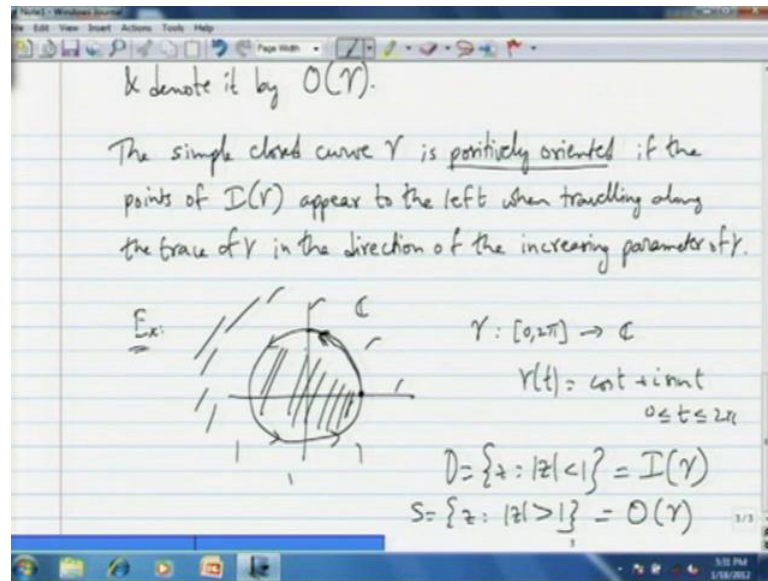 Note1 - Windows Journal
Edit View Insert Actions Tools Help
Page Width
& denote it by O(γ).
The simple closed curve γ is positively oriented if the
points of I(γ) appear to the left when travelling along
the trace of γ in the direction of the increasing parameter of γ.
Ex:
ℂ
γ : [0,2π] → ℂ
γ(t) = cos t + i sin t
0 ≤ t ≤ 2π
D = {z : |z| < 1} = I(γ)
S = {z : |z| > 1} = O(γ)
3/3
5:31 PM
1/18/2012